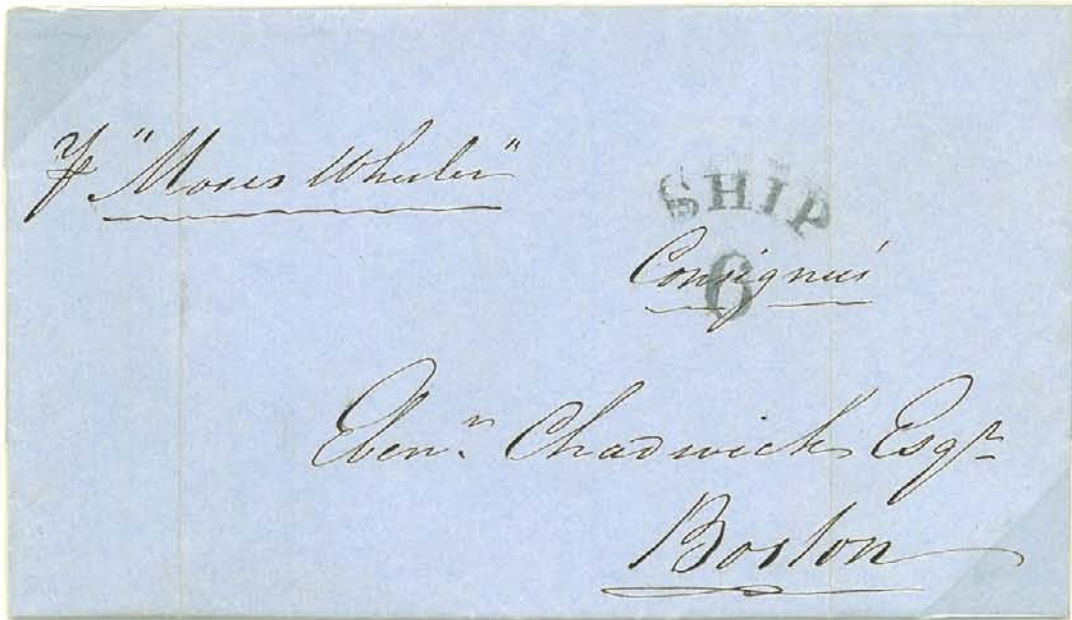 pr "Moses Wheeler"
SHIP
Consignees
6
Ebenr. Chadwick Esqr.
Boston